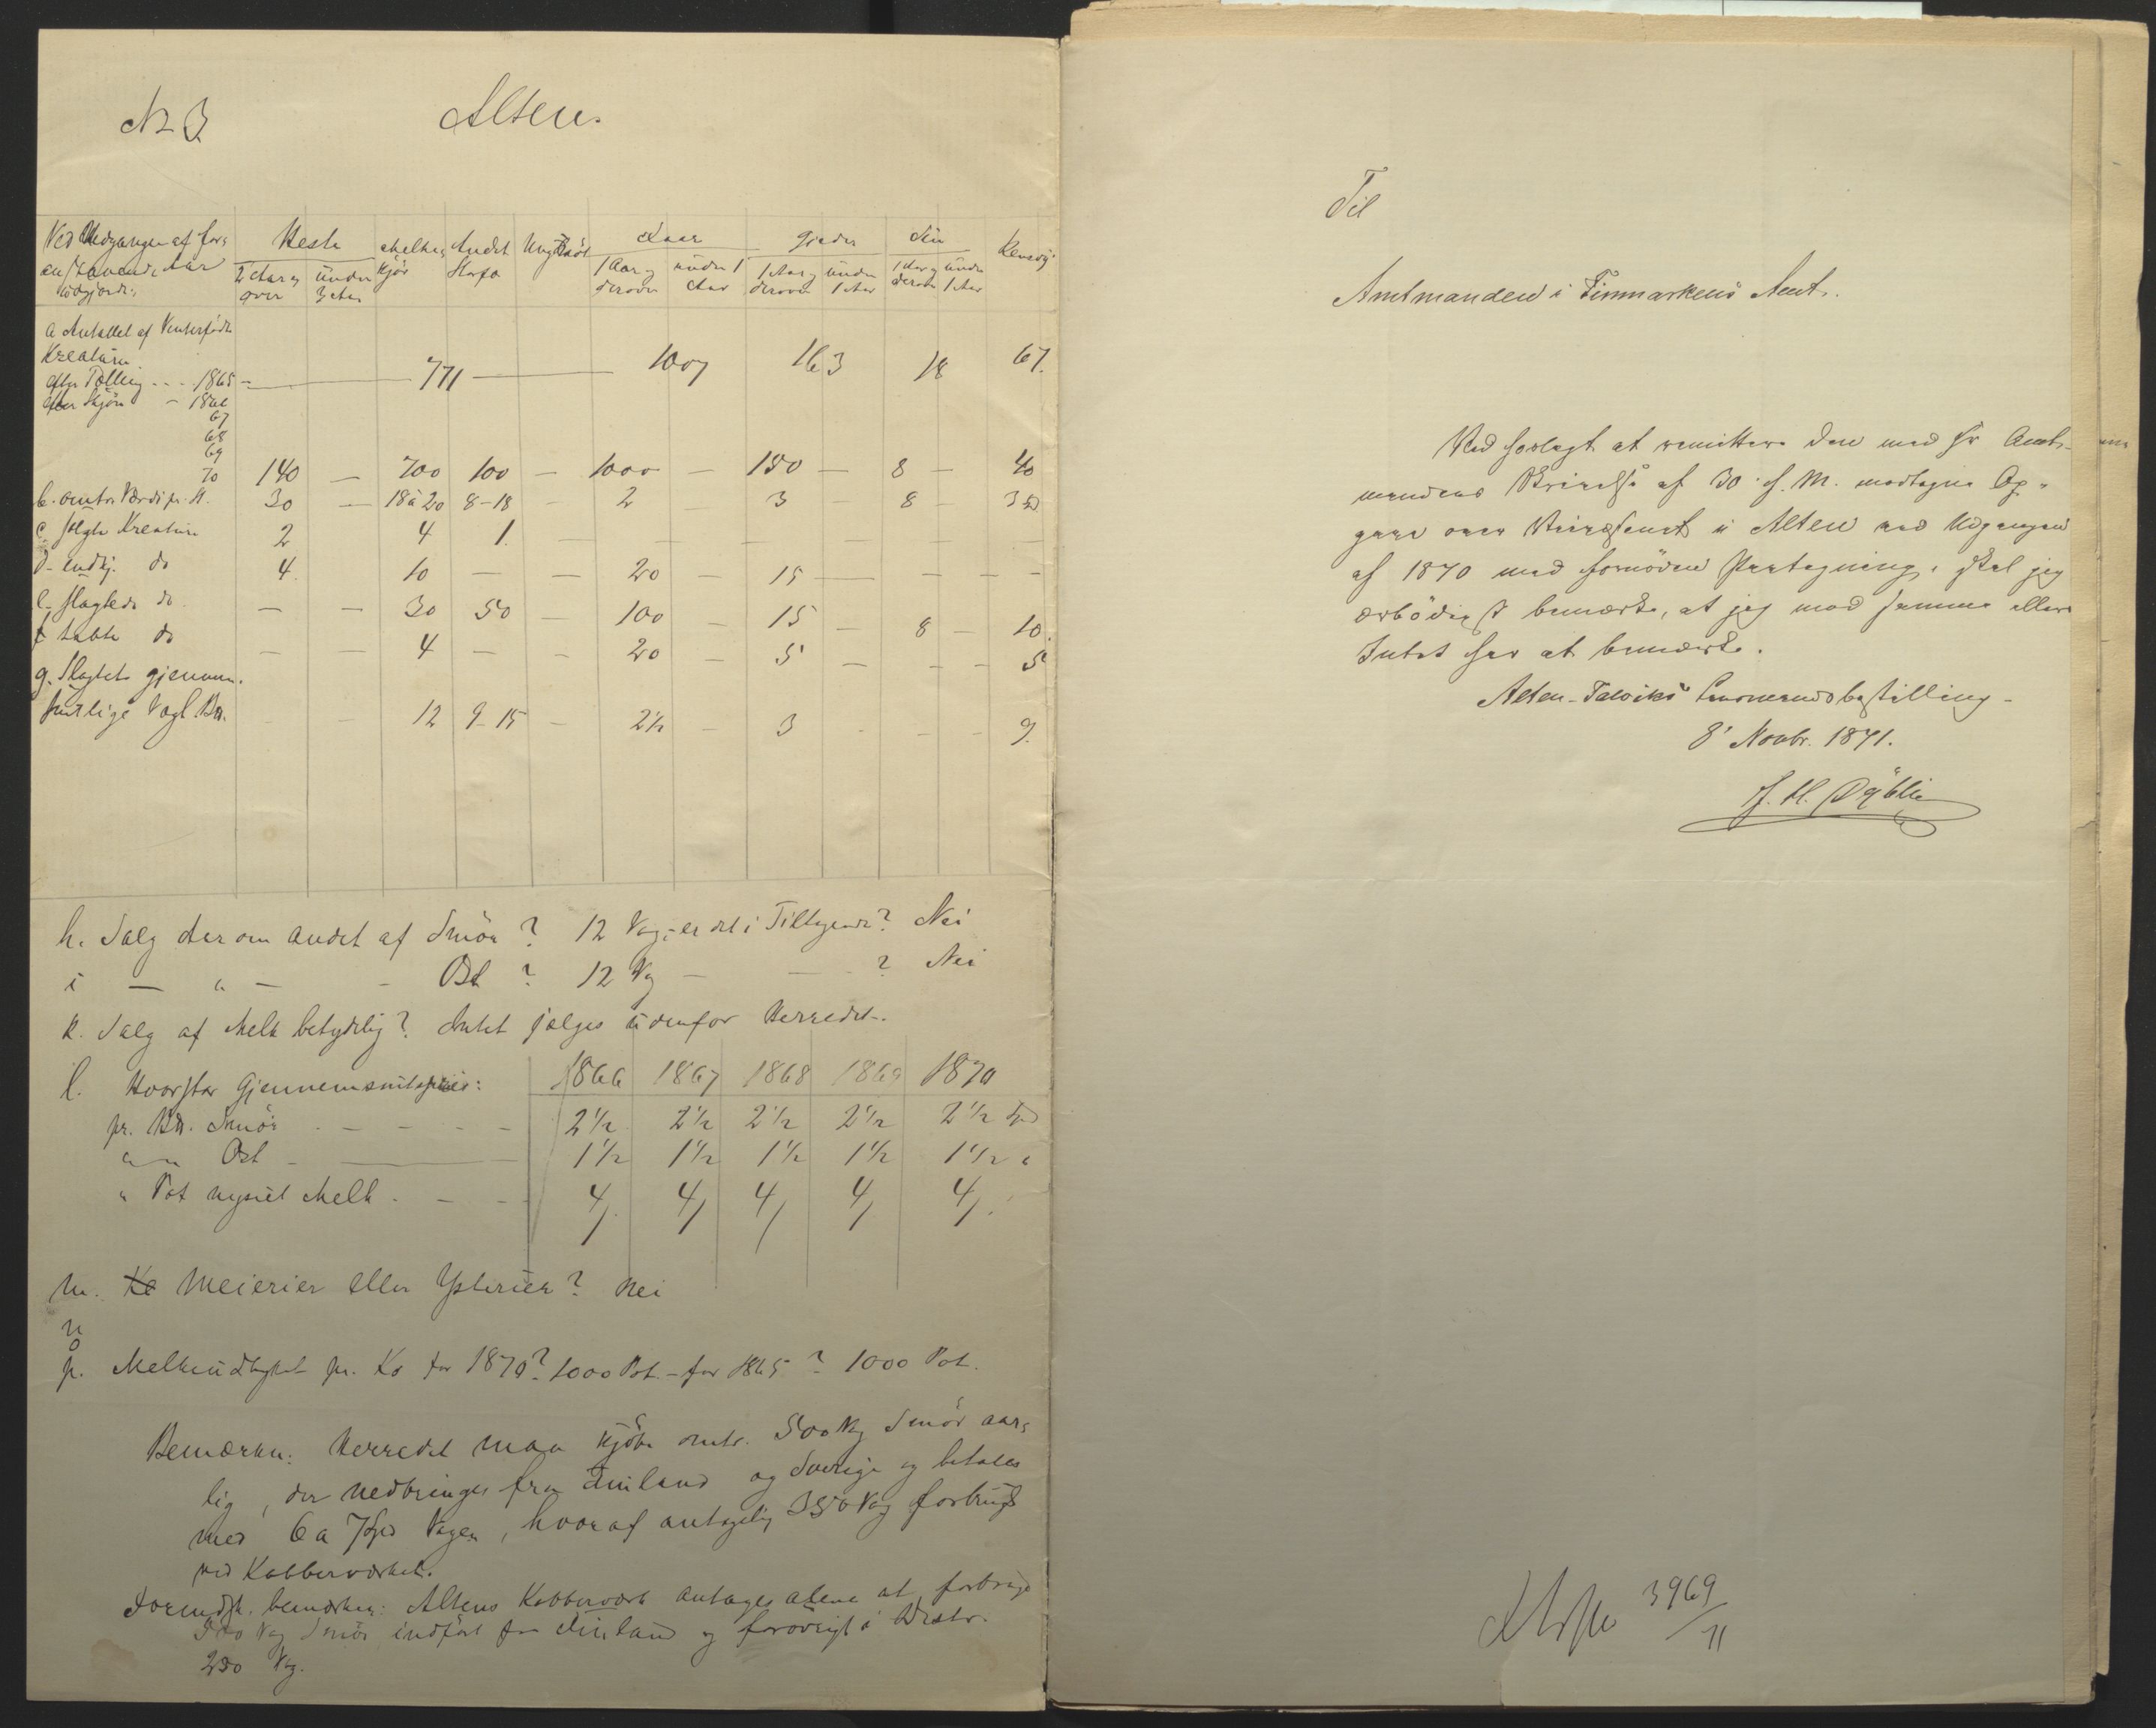 No 3
Alten.
Ved Udgangen af for-
anstaaende Aar
udgjorde:
Heste
2 Aar og over
under 3 Aar
Melke-kjör
Andet Storfæ
Ungnöt
Faar
1 Aar og derover
under 1 Aar
Gjeder
1 Aar og derover
under 1 Aar
Sviin
1 Aar og derover
under 1 Aar
Rensdyr
a Antallet af Vinterfödte
Kreaturer
efter Tælling - - - 1865 - 771 1007 163 18 67.
efter Skjön - 1866
67
68
69
70 140 — 700 100 — 1000 — 150 — 8 — 40
b. omtr. Værdi pr. St. 30 — 18 à 20 8-18 - 2 - 3 - 8 - 3
c. solgte Kreature 2 4 1. — — — — — — — —
d. indkj. do 4. 10 — — 20 — 15 — — — —
e. slagtede do. — — 30 50 — 100 — 15 — 8 — 10.
f tabte do — — 4 — - 20 — 5 — - - 5
g. Slagtets gjennem-
snitlige Vægt B℔. - - 12 9-15 - 2½ - 3 - - - 9.
h. Salg Aar om andet af Smör? 12 Vog, - er det i Tiltagende? Nei
i — " — - Ost? 12 Vog — — ? Nei
k. Salg af Melk betydelig? Intet sælges udenfor Herredet.
l. Hvorstor Gjennemsnitspriis: 1866 1867 1868 1869 1870
pr. B℔. Smör - - - - 2½ 2½ 2½ 2½ 2½ Spd
" " Ost - — 1½ 1½ 1½ 1½ 1½ "
" Pot nysiet Melk. - - 4 4 4 4 4
m. Meierier eller Ysterier? Nei
n
o
p. Melkeudbyttet pr. Ko for 1870? 1000 Pot. - for 1865? 1000 Pot.
Bemærkn: Herredet maa kjöbe omtr. 500 Vog Smör aar-
lig, der nedbringes fra Finland og Sverige og betales
med 6 a 7 Spd Vogen, hvoraf antagelig 350 Vog forbruges
ved Kobberværket.
Formdsk. bemærker: Altens Kobberværk antages alene at forbruge
Vog Smör indfört fra Finland og forövrigt i Distr.
250 Vog.
Til
Amtmanden i Finmarkens Amt.
Ved forlagt at remittere den med Hr Amt-
mandens Skrivelse af 30 f. M. modtagne Op-
gave over Kvægavl i Alten ved Udgangen
af 1870 med fornöden Paategning, skal jeg
ærbödigst bemærke, at jeg mod samme ellers
Intet har at bemærke.
Alten-Talviks Lensmandsbestilling
8' Novbr. 1871.
3969
/11